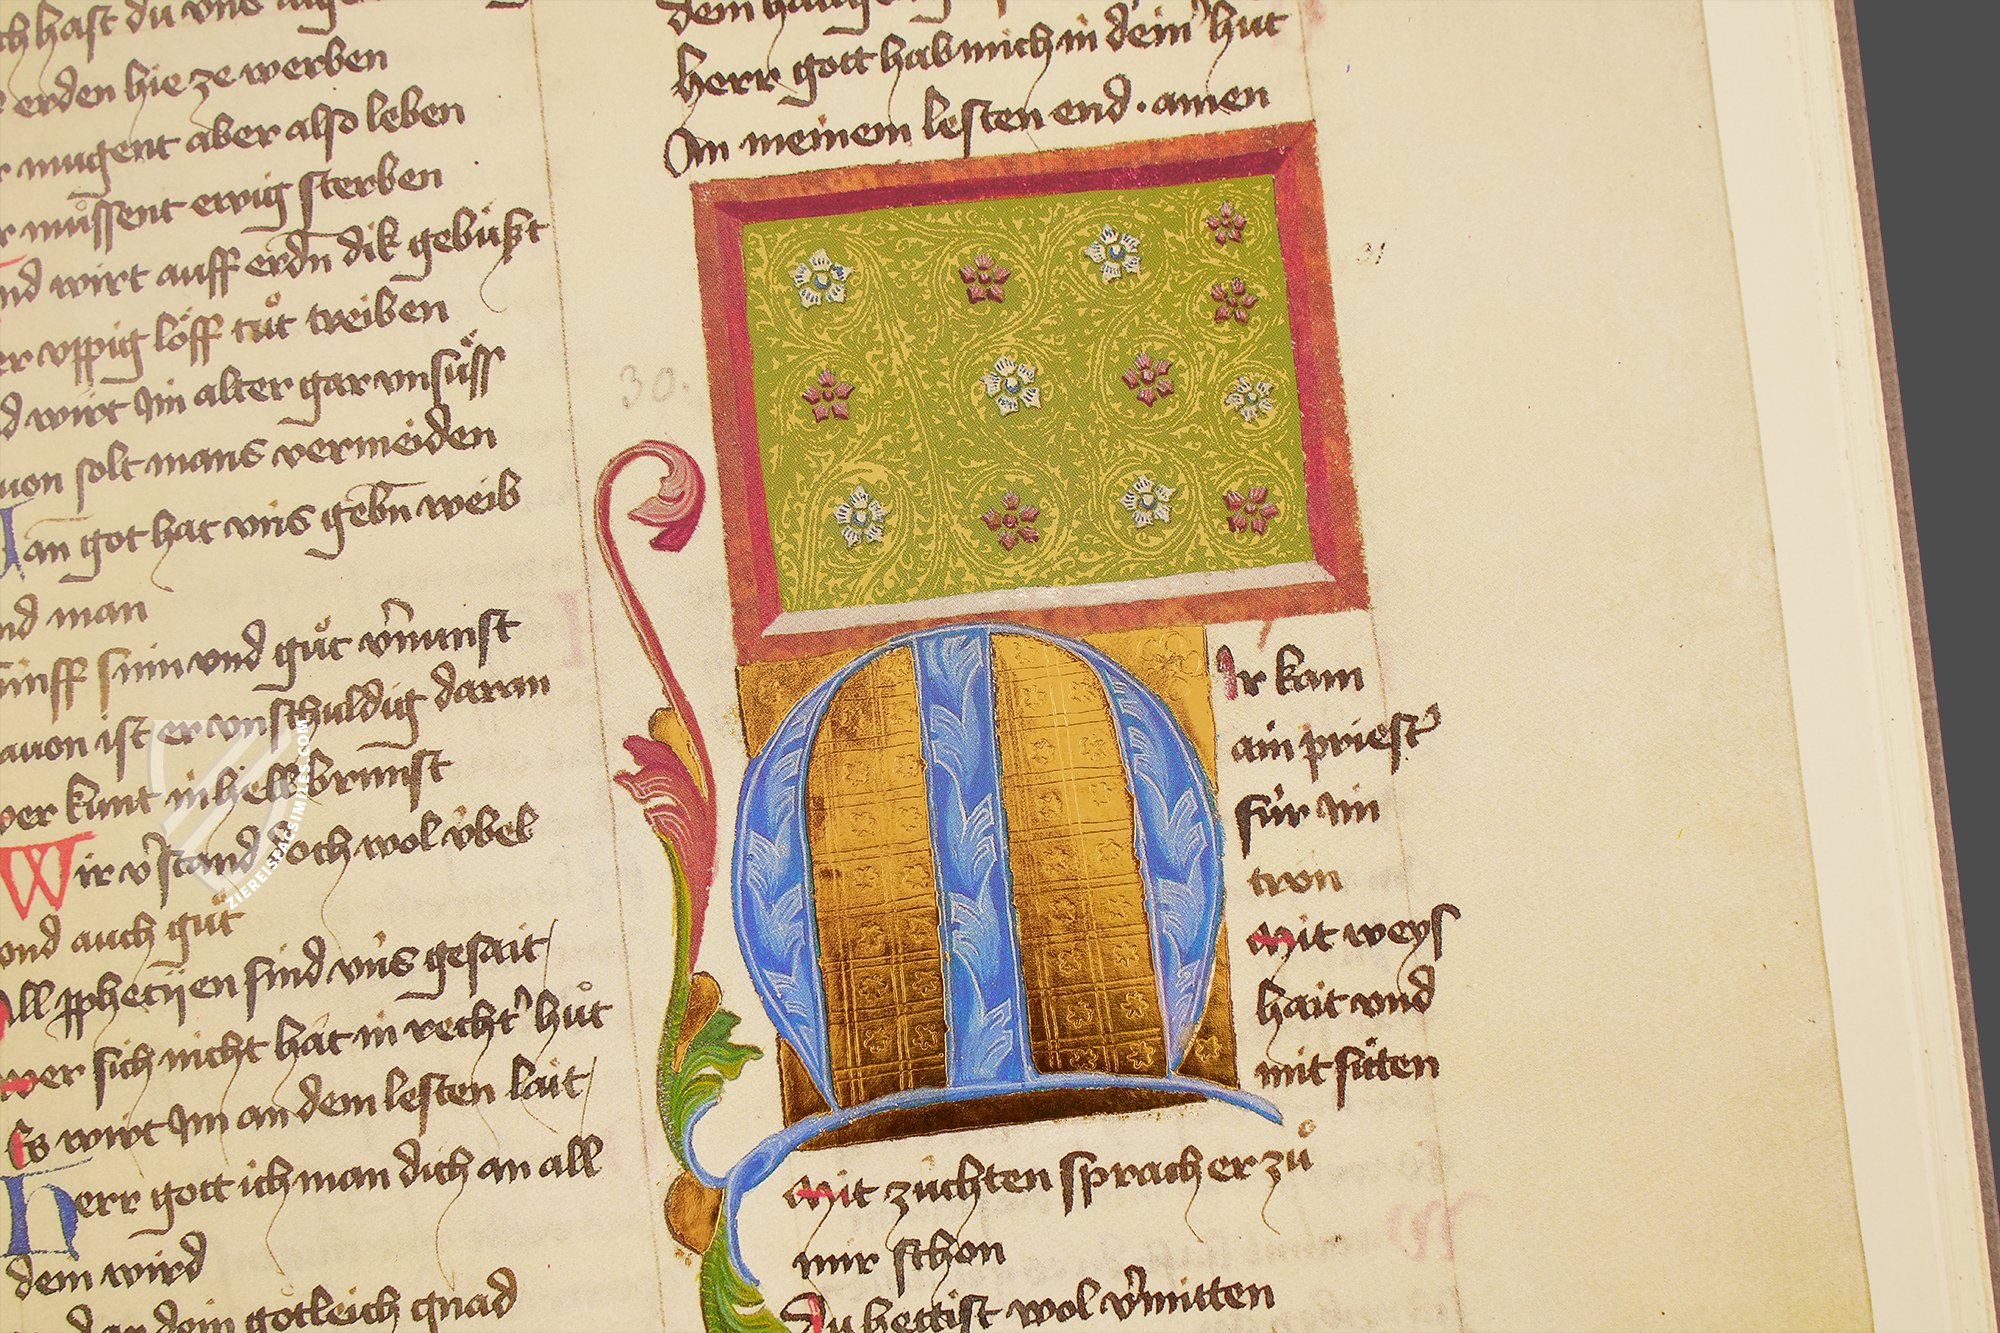 hast du vns
erden hie ze werben
mugent aber also leben
müssent ewig sterben
nd wirt auff erdn̄ dik gebüszt
er vppig löff tůt treiben
d wirt Im alter gar vnsüss
uon solt mans vermeiden
an̄ got hat vns gebn̄ weib
nd man
ünff sinn vnd gůt v̄nunst
auon ist er vnschuldig daran
wer kunt in hellbrunst
Wir v̄stand doch wol übel
vnd auch gůt
All pphecijen sind vns gesait
wer sich nicht hat in recht' hůt
Es wirt Im an dem lesten lait
herr gott ich man dich an all
dem wird
dein gotleich gnad
herr gott hab mich in dein' hut
An meinem lesten end · amen
31
30.
Mir kam
ain priest'
für Im
tron
Mit weys
hait vnd
mit siten
Mit züchten sprach er zů
mir schon
Du hettist wol v'mitten
ZIEREISFACSIMILES.COM